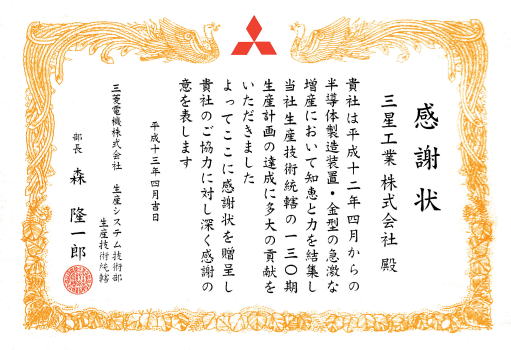 感謝状
三星工業 株式会社 殿
貴社は平成十二年四月からの
半導体製造装置・金型の急激な
増産において知恵と力を結集し
当社生産技術統轄の一三〇期
生産計画の達成に多大の貢献を
いただきました
よってここに感謝状を贈呈し
貴社のご協力に対し深く感謝の
意を表します
平成十三年四月吉日
三菱電機株式会社 生産システム技術部
生産技術統轄
部長 森 隆一郎